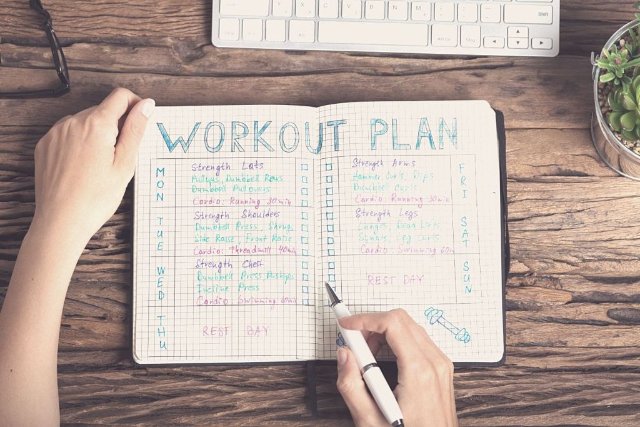 WORKOUT PLAN
MON
Strength Lats
Pullups, Dumbbell Rows
Dumbbell Pullovers
Cardio: Running 30min
TUE
Strength Shoulders
Dumbbell Press, Shrugs
Side Raise, Front Raise
Cardio: Threadmill 40min
WED
Strength Chest
Dumbbell Press Pushups
Incline Press
Cardio Swimming 60min
THU
REST DAY
Strength Arms
Hammer Curls, Dips
Dumbbell Curls
Cardio: Running 30min
FRI
Strength Legs
Lunges, Dead Lifts
Squats, Leg Curls
Cardio: Swimming
SAT
REST DAY
SUN